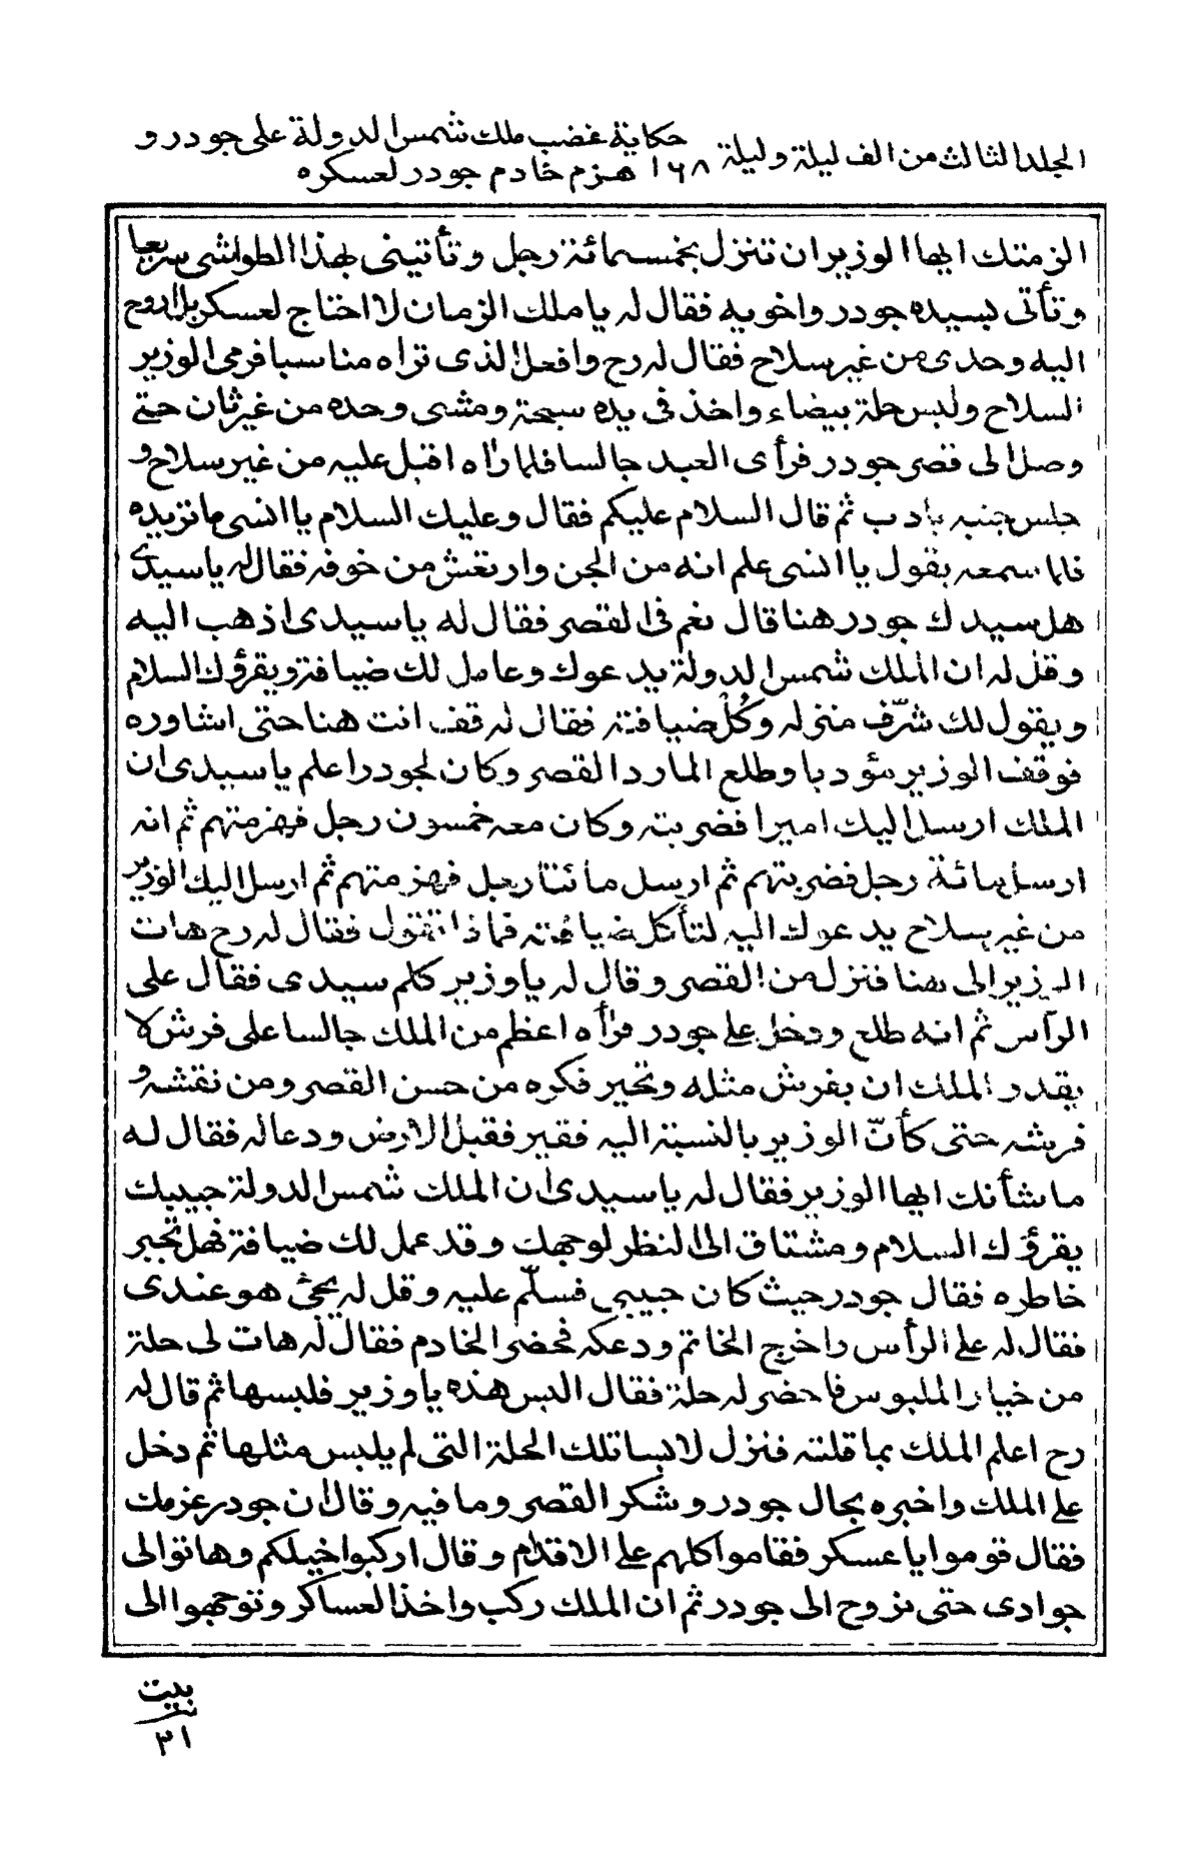 المجلد الثالث من الف ليلة وليلة ١٦٨ حكاية غضب ملك شمس الدولة على جودر و
هزم خادم جودر لعسكره
الزمتك ايها الوزير ان تنزل بخمسمائة رجل وتأتينى بهذا الطواشى سريعا
وتأتى بسيده جودر واخويه فقال له يا ملك الزمان لا احتاج لعسكر بل اروح
اليه وحدى من غير سلاح فقال له رح وافعل الذى تراه مناسبا فرمى الوزير
السلاح ولبس حلة بيضاء واخذ فى يده سبحة ومشى وحده من غير ثان حتى
وصل الى قصر جودر فرأى العبد جالسا فلما رأاه اقبل عليه من غير سلاح و
جلس جنبه بادب ثم قال السلام عليكم فقال وعليك السلام يا انسى ما تريده
فلما سمعه يقول يا انسى علم انه من الجن وارتعش من خوفه فقال له يا سيدى
هل سيدك جودر هنا قال نعم فى القصر فقال له يا سيدى اذهب اليه
وقل له ان الملك شمس الدولة يدعوك وعامل لك ضيافة ويقرؤك السلام
ويقول لك شرّف منزله وكُلْ ضيافته فقال له قف انت هنا حتى اشاوره
فوقف الوزير مؤدبا وطلع المارد القصر وكان لجودر اعلم يا سيدى ان
الملك ارسل اليك اميرا فضربته وكان معه خمسون رجل فهزمتهم ثم انه
ارسل مائة رجل فضربتهم ثم ارسل مائتا رجل فهزمتهم ثم ارسل اليك الوزير
من غير سلاح يدعوك اليه لتأكل ضيافته فماذا تقول فقال له رح هات
الوزير الى هنا فنزل من القصر وقال له يا وزير كلم سيدى فقال على
الرأس ثم انه طلع ودخل على جودر فرأه اعظم من الملك جالسا على فرش لا
يقدر الملك ان يفرش مثله وتحير فكره من حسن القصر ومن نقشه و
فرشه حتى كأنّ الوزير بالنسبة اليه فقير فقبل الارض ودعا له فقال له
ما شأنك ايها الوزير فقال له يا سيدى ان الملك شمس الدولة حبيبك
يقرؤك السلام ومشتاق الى النظر لوجهك وقد عمل لك ضيافة فهل تجبر
خاطره فقال جودر حيث كان حبيبى فسلّم عليه وقل له يجئ هو عندى
فقال له على الرأس واخرج الخاتم ودعكه فحضر الخادم فقال له هات لى حلة
من خيار الملبوس فاحضر له حلة فقال البس هذه يا وزير فلبسها ثم قال له
رح اعلم الملك بما قلته فنزل لابسا تلك الحلة التى لم يلبس مثلها ثم دخل
على الملك واخبره بحال جودر وشكر القصر وما فيه وقال ان جودر عزمك
فقال قوموا يا عسكر فقاموا كلهم على الاقدام وقال اركبوا خيلكم وهاتوا لى
جوادى حتى نروح الى جودر ثم ان الملك ركب واخذ العساكر وتوجهوا الى
بيت
٣١